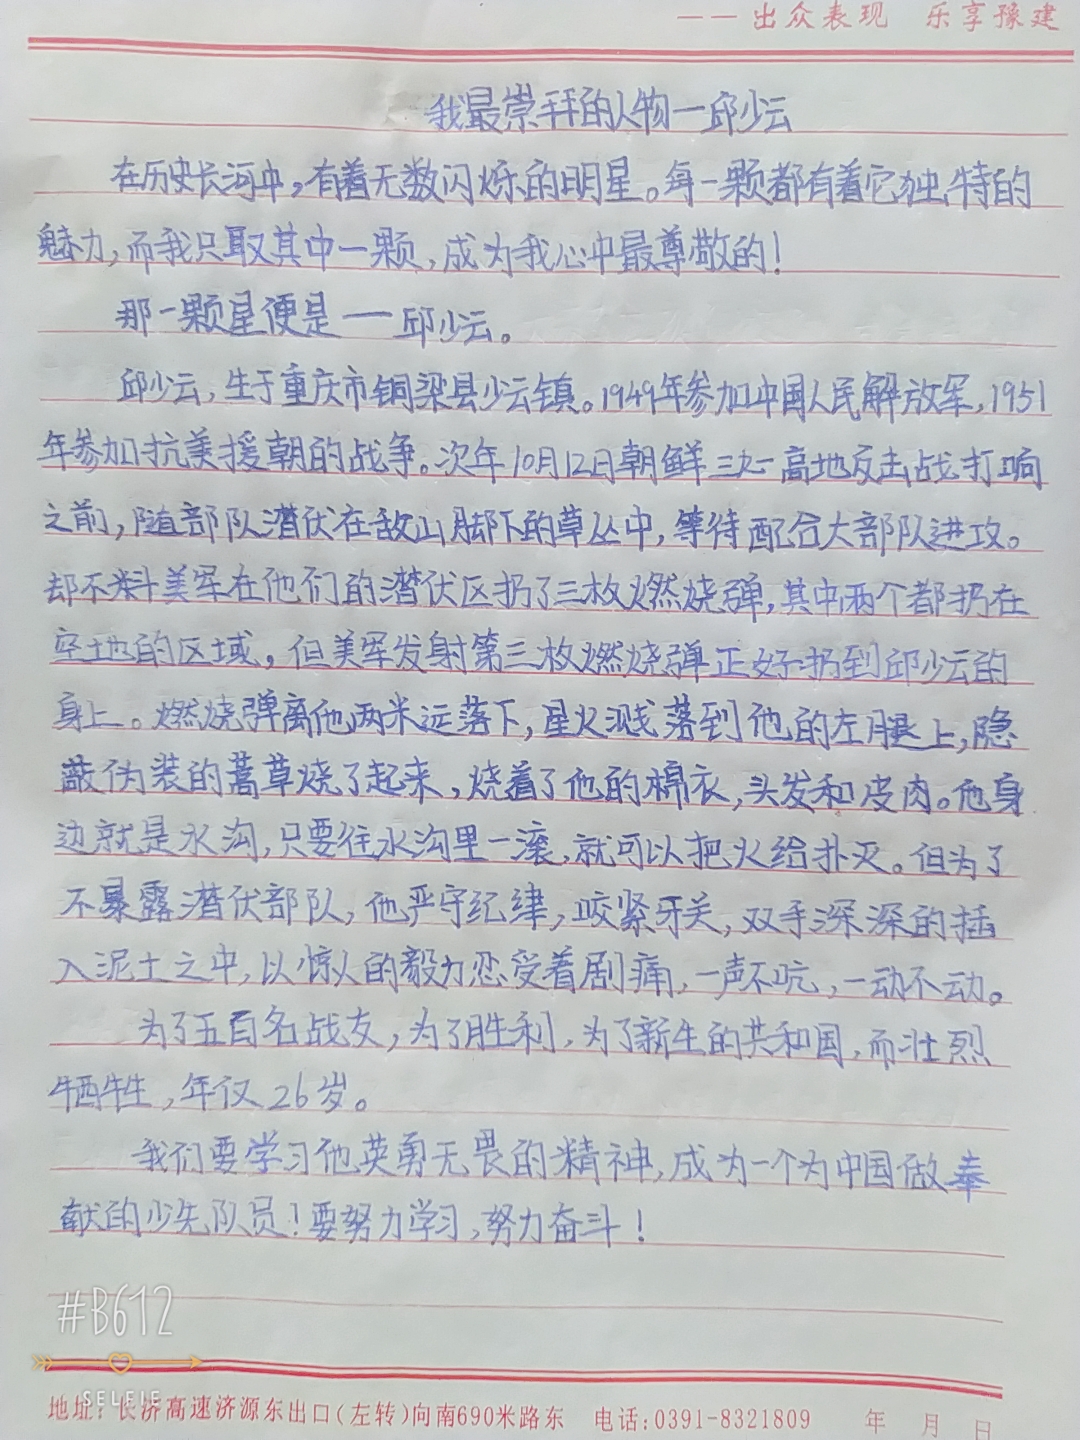 ——出众表现 乐享豫建
我最崇拜的人物—邱少云
在历史长河中,有着无数闪烁的明星。每一颗都有着它独特的
魅力,而我只取其中一颗,成为我心中最尊敬的!
那一颗星便是——邱少云。
邱少云,生于重庆市铜梁县少云镇。1949年参加中国人民解放军,1951
年参加抗美援朝的战争。次年10月12日朝鲜三九一高地反击战打响
之前,随部队潜伏在敌山脚下的草丛中,等待配合大部队进攻。
却不料美军在他们的潜伏区扔了三枚燃烧弹,其中两个都扔在
空地的区域,但美军发射第三枚燃烧弹正好扔到邱少云的
身上。燃烧弹离他两米远落下,星火溅落到他的左腿上,隐
蔽伪装的蒿草烧了起来,烧着了他的棉衣,头发和皮肉。他身
边就是水沟,只要往水沟里一滚,就可以把火给扑灭。但为了
不暴露潜伏部队,他严守纪律,咬紧牙关,双手深深的插
入泥土之中,以惊人的毅力忍受着剧痛,一声不吭,一动不动。
为了五百名战友,为了胜利,为了新生的共和国,而壮烈
牺牲,年仅26岁。
我们要学习他英勇无畏的精神,成为一个为中国做奉
献的少先队员!要努力学习,努力奋斗!
#B612
SELFIE
地址:长济高速济源东出口(左转)向南690米路东 电话:0391-8321809 年 月 日